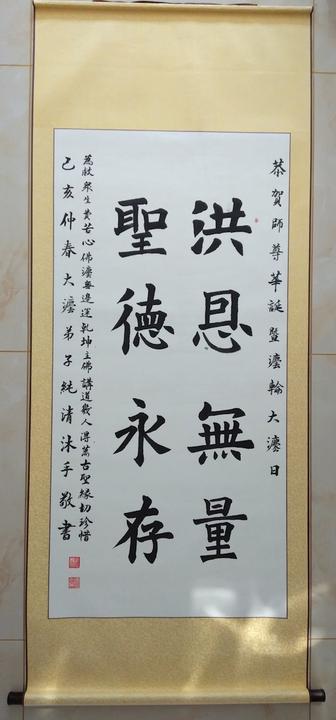 恭賀師尊華誕暨灋輪大灋日
洪恩無量
聖德永存
為救眾生費苦心佛灋無邊運乾坤主佛講道幾人得萬古聖緣切珍惜
己亥仲春大灋弟子純清沐手敬書